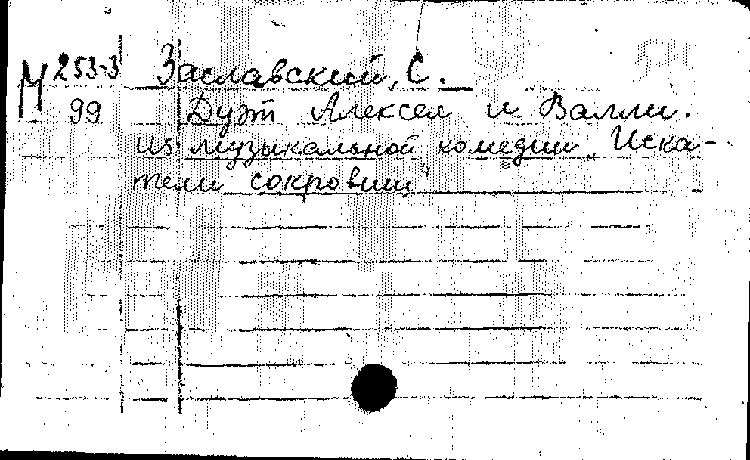 М 253-3 Заславский, С.
99 Дуэт Алексея и Валли.
из музыкальной комедии „Иска-
тели сокровищ"